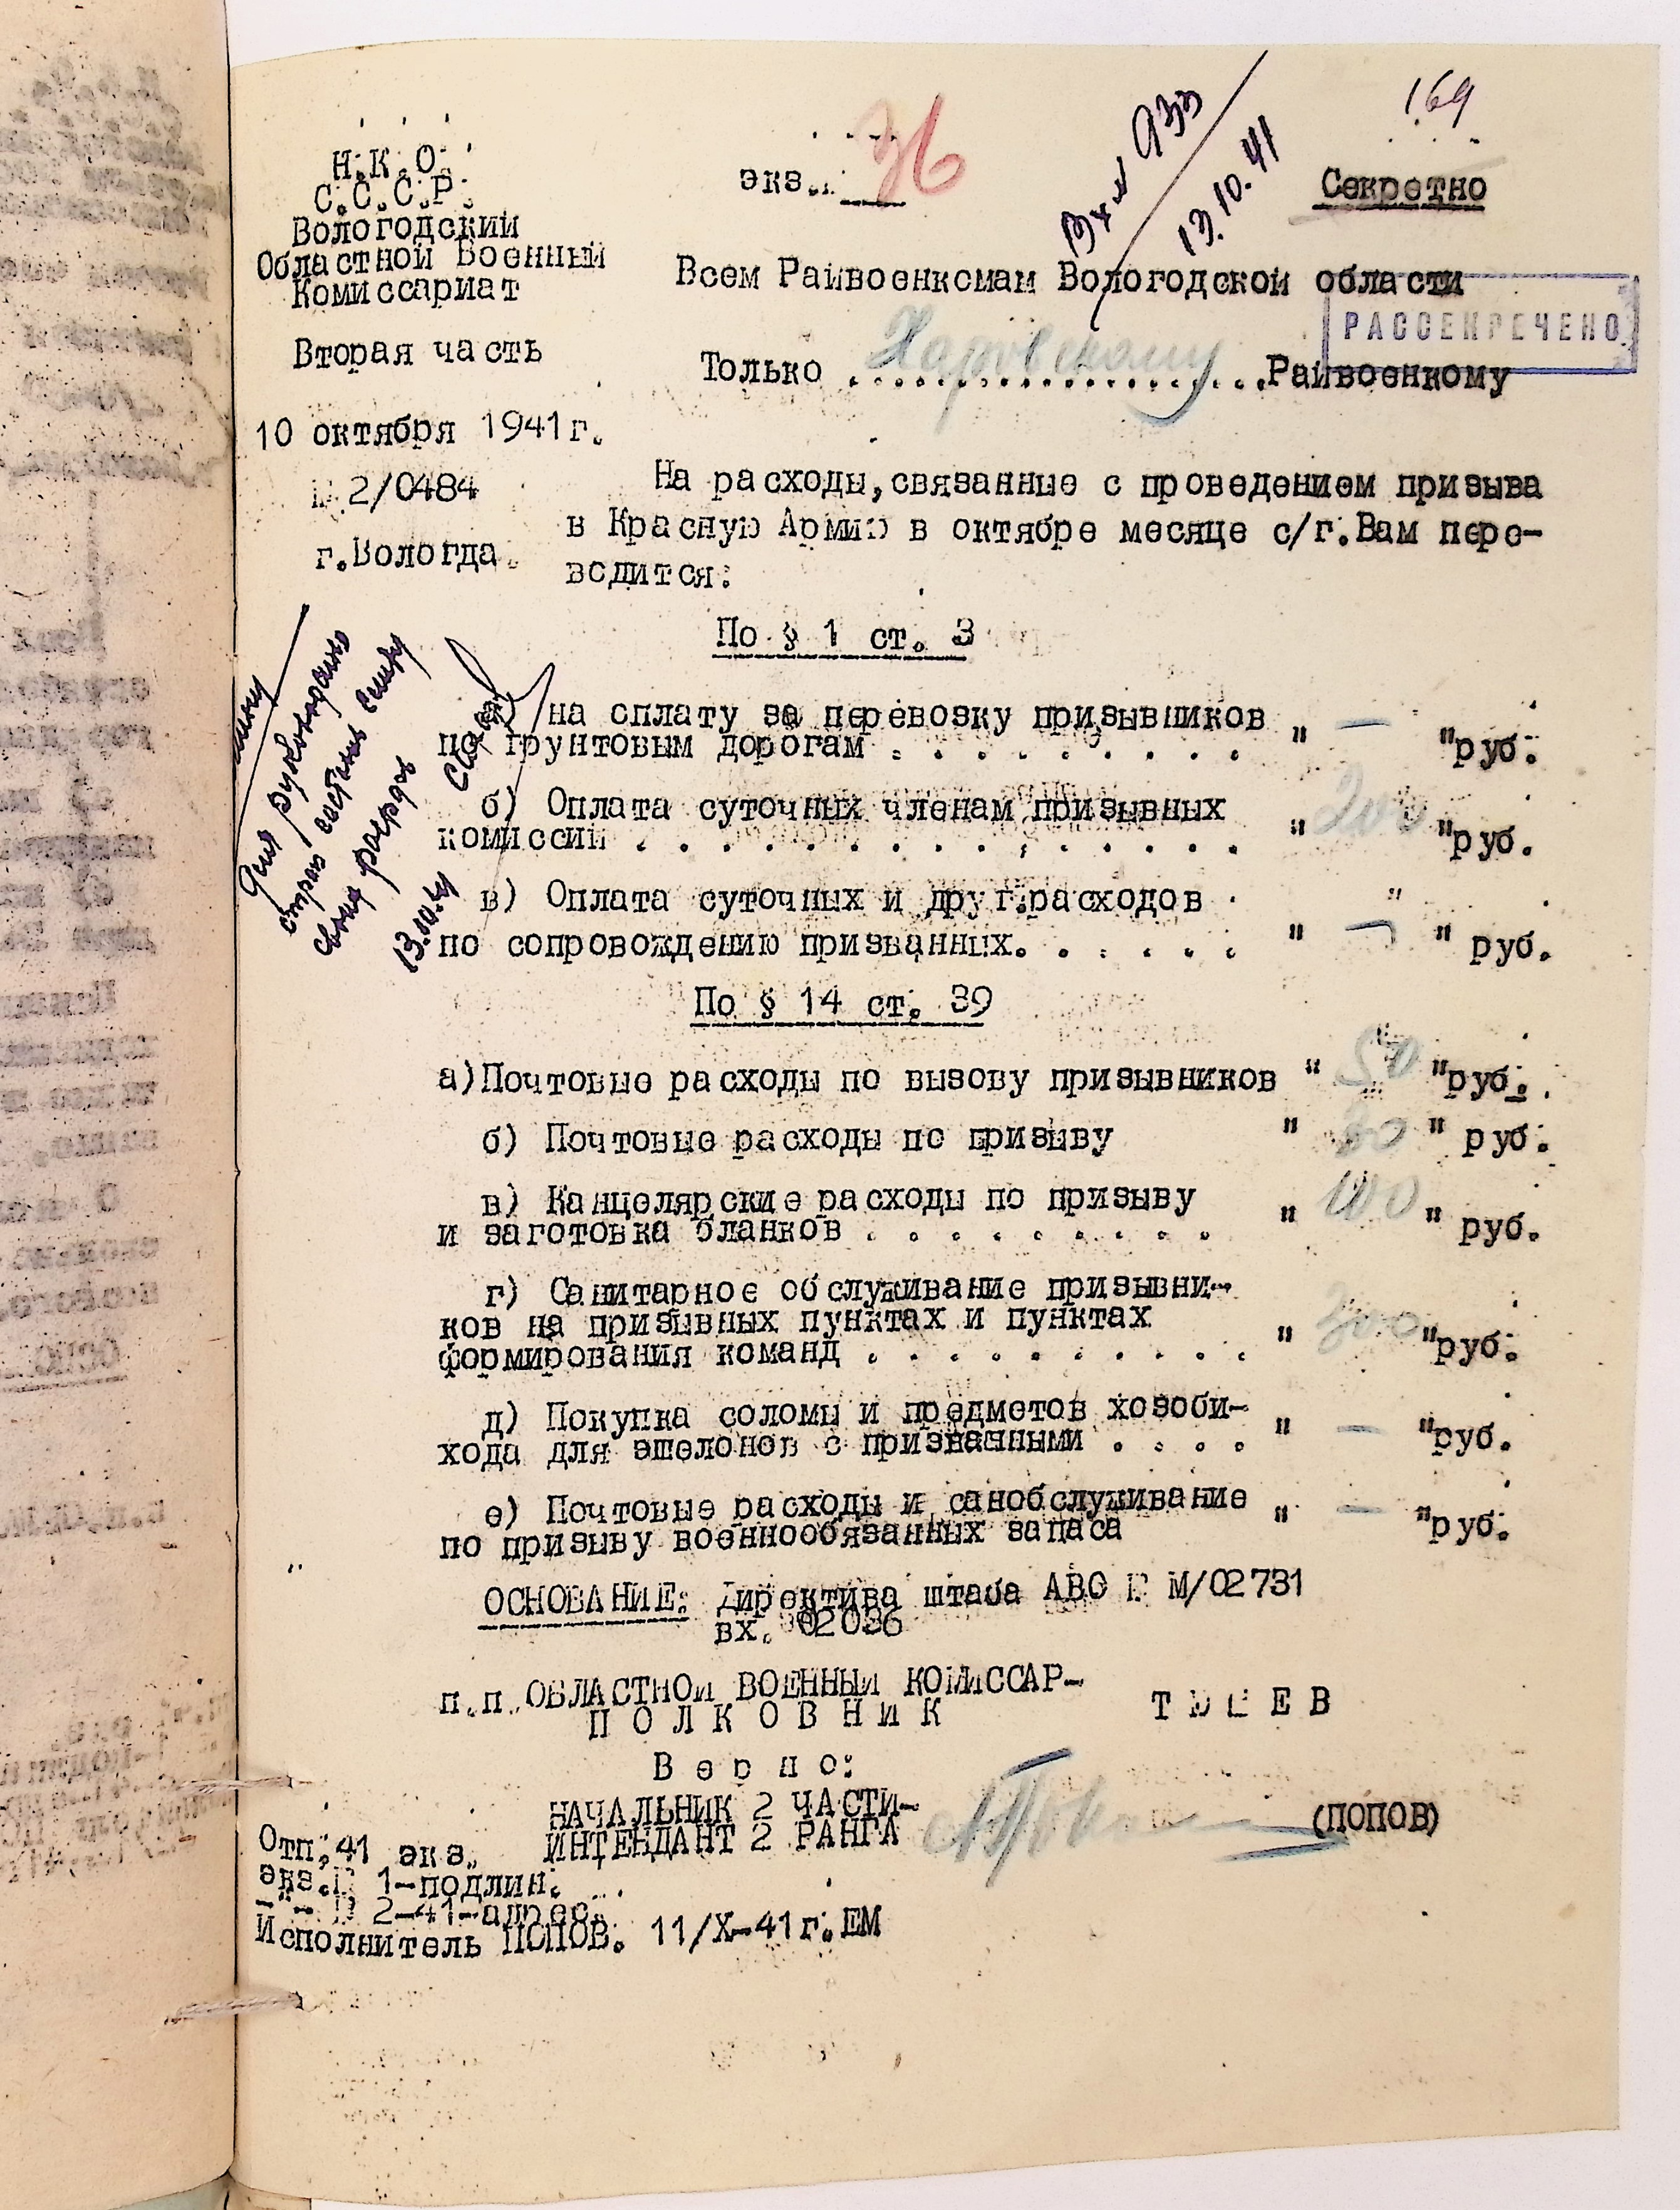 169
Н.К.О.
С.С.С.Р.
Вологодский
Областной Военный
Комиссариат
Вторая часть
10 октября 1941г.
2/0484
г.Вологда.
экз. 36
Вх № 933
13.10.41
Секретно
Всем Райвоенкомам Вологодской области
РАССЕКРЕЧЕНО
Только Харовскому Райвоенкому
На расходы, связанные с проведением призыва
в Красную Армию в октябре месяце с/г.Вам пере-
водится:
По § 1 ст. 3
Для руководства
свои расходов
13.10.41
а) на оплату за перевозку призывников
по грунтовым дорогам . . . . . . . . . " — "руб.
б) Оплата суточных членам призывных
комиссий . . . . . . . . . . . . . . . " 200 "руб.
в) Оплата суточных и друг.расходов
по сопровождению призванных. . . . . . " — " руб.
По § 14 ст. 39
а)Почтовые расходы по вызову призывников " 50 "руб.
б) Почтовые расходы по призыву " 30 " руб.
в) Канцелярские расходы по призыву
и заготовка бланков . . . . . . . . . " 100 " руб.
г) Санитарное обслуживание призывни-
ков на призывных пунктах и пунктах
формирования команд . . . . . . . . . . " 300 "руб.
д) Покупка соломы и предметов хозоби-
хода для эшелонов с призванными . . . . " — "руб.
е) Почтовые расходы и санобслуживание
по призыву военнообязанных запаса " — "руб.
ОСНОВАНИЕ: Директива штаба АВО № М/02731
вх. 02036
п.п. ОБЛАСТНОЙ ВОЕННЫЙ КОМИССАР-
П О Л К О В Н И К
В е р н о:
НАЧАЛЬНИК 2 ЧАСТИ-
ИНТЕНДАНТ 2 РАНГА (ПОПОВ)
Отп.41 экз.
экз.№ 1-подлин.
-"- № 2-41-адрес.
Исполнитель ПОПОВ. 11/X-41г.ЕМ